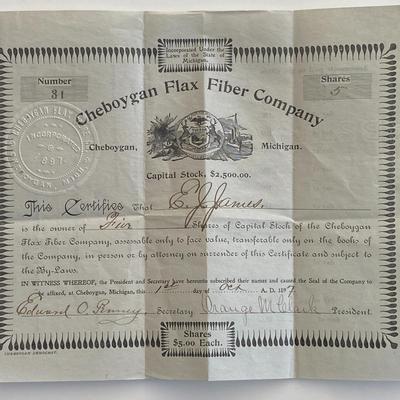 Incorporated Under the
Laws of the State of
Michigan.
Number
31
Shares
5
Cheboygan Flax Fiber Company
Cheboygan, Michigan.
INCORPORATED
1897
Capital Stock, $2,500.00.
This Certifies That E. J. James,
is the owner of Five Shares of Capital Stock of the Cheboygan
Flax Fiber Company, assessable only to face value, transferable only on the books of
the Company, in person or by attorney on surrender of this Certificate and subject to
the By-Laws.
IN WITNESS WHEREOF, the President and Secretary have hereunto subscribed their names and caused the Seal of the Company to
be affixed, at Cheboygan, Michigan, this 1st day of Oct A. D. 1897
Edward O. Secretary Orange M. Clark President.
Shares
$5.00 Each.
CHEBOYGAN DEMOCRAT.